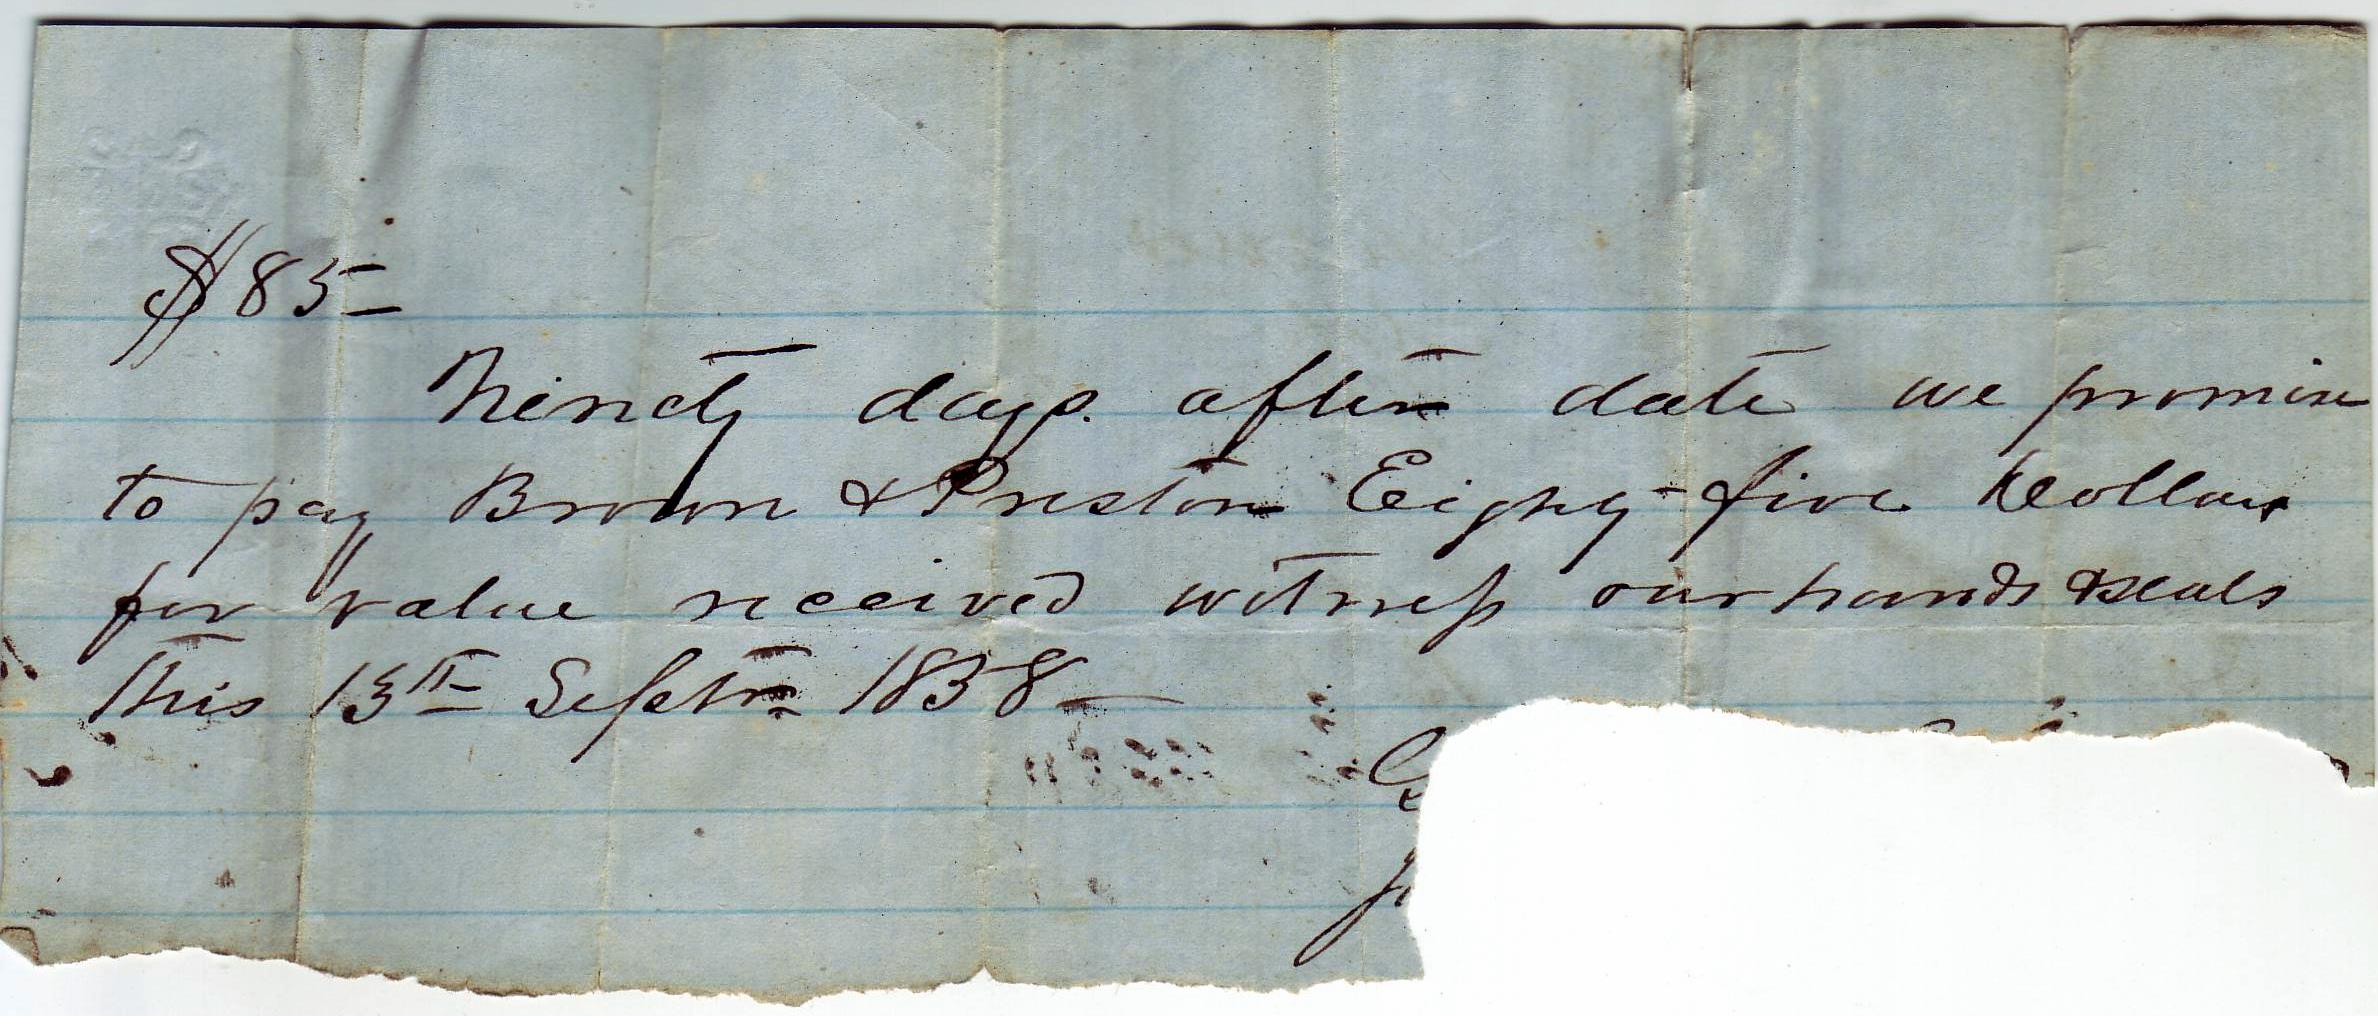 $85=
Ninety days after date we promise
to pay Brown & Preston Eighty-five Dollars
for value received witness our hands & seals
this 13th Septm 1858